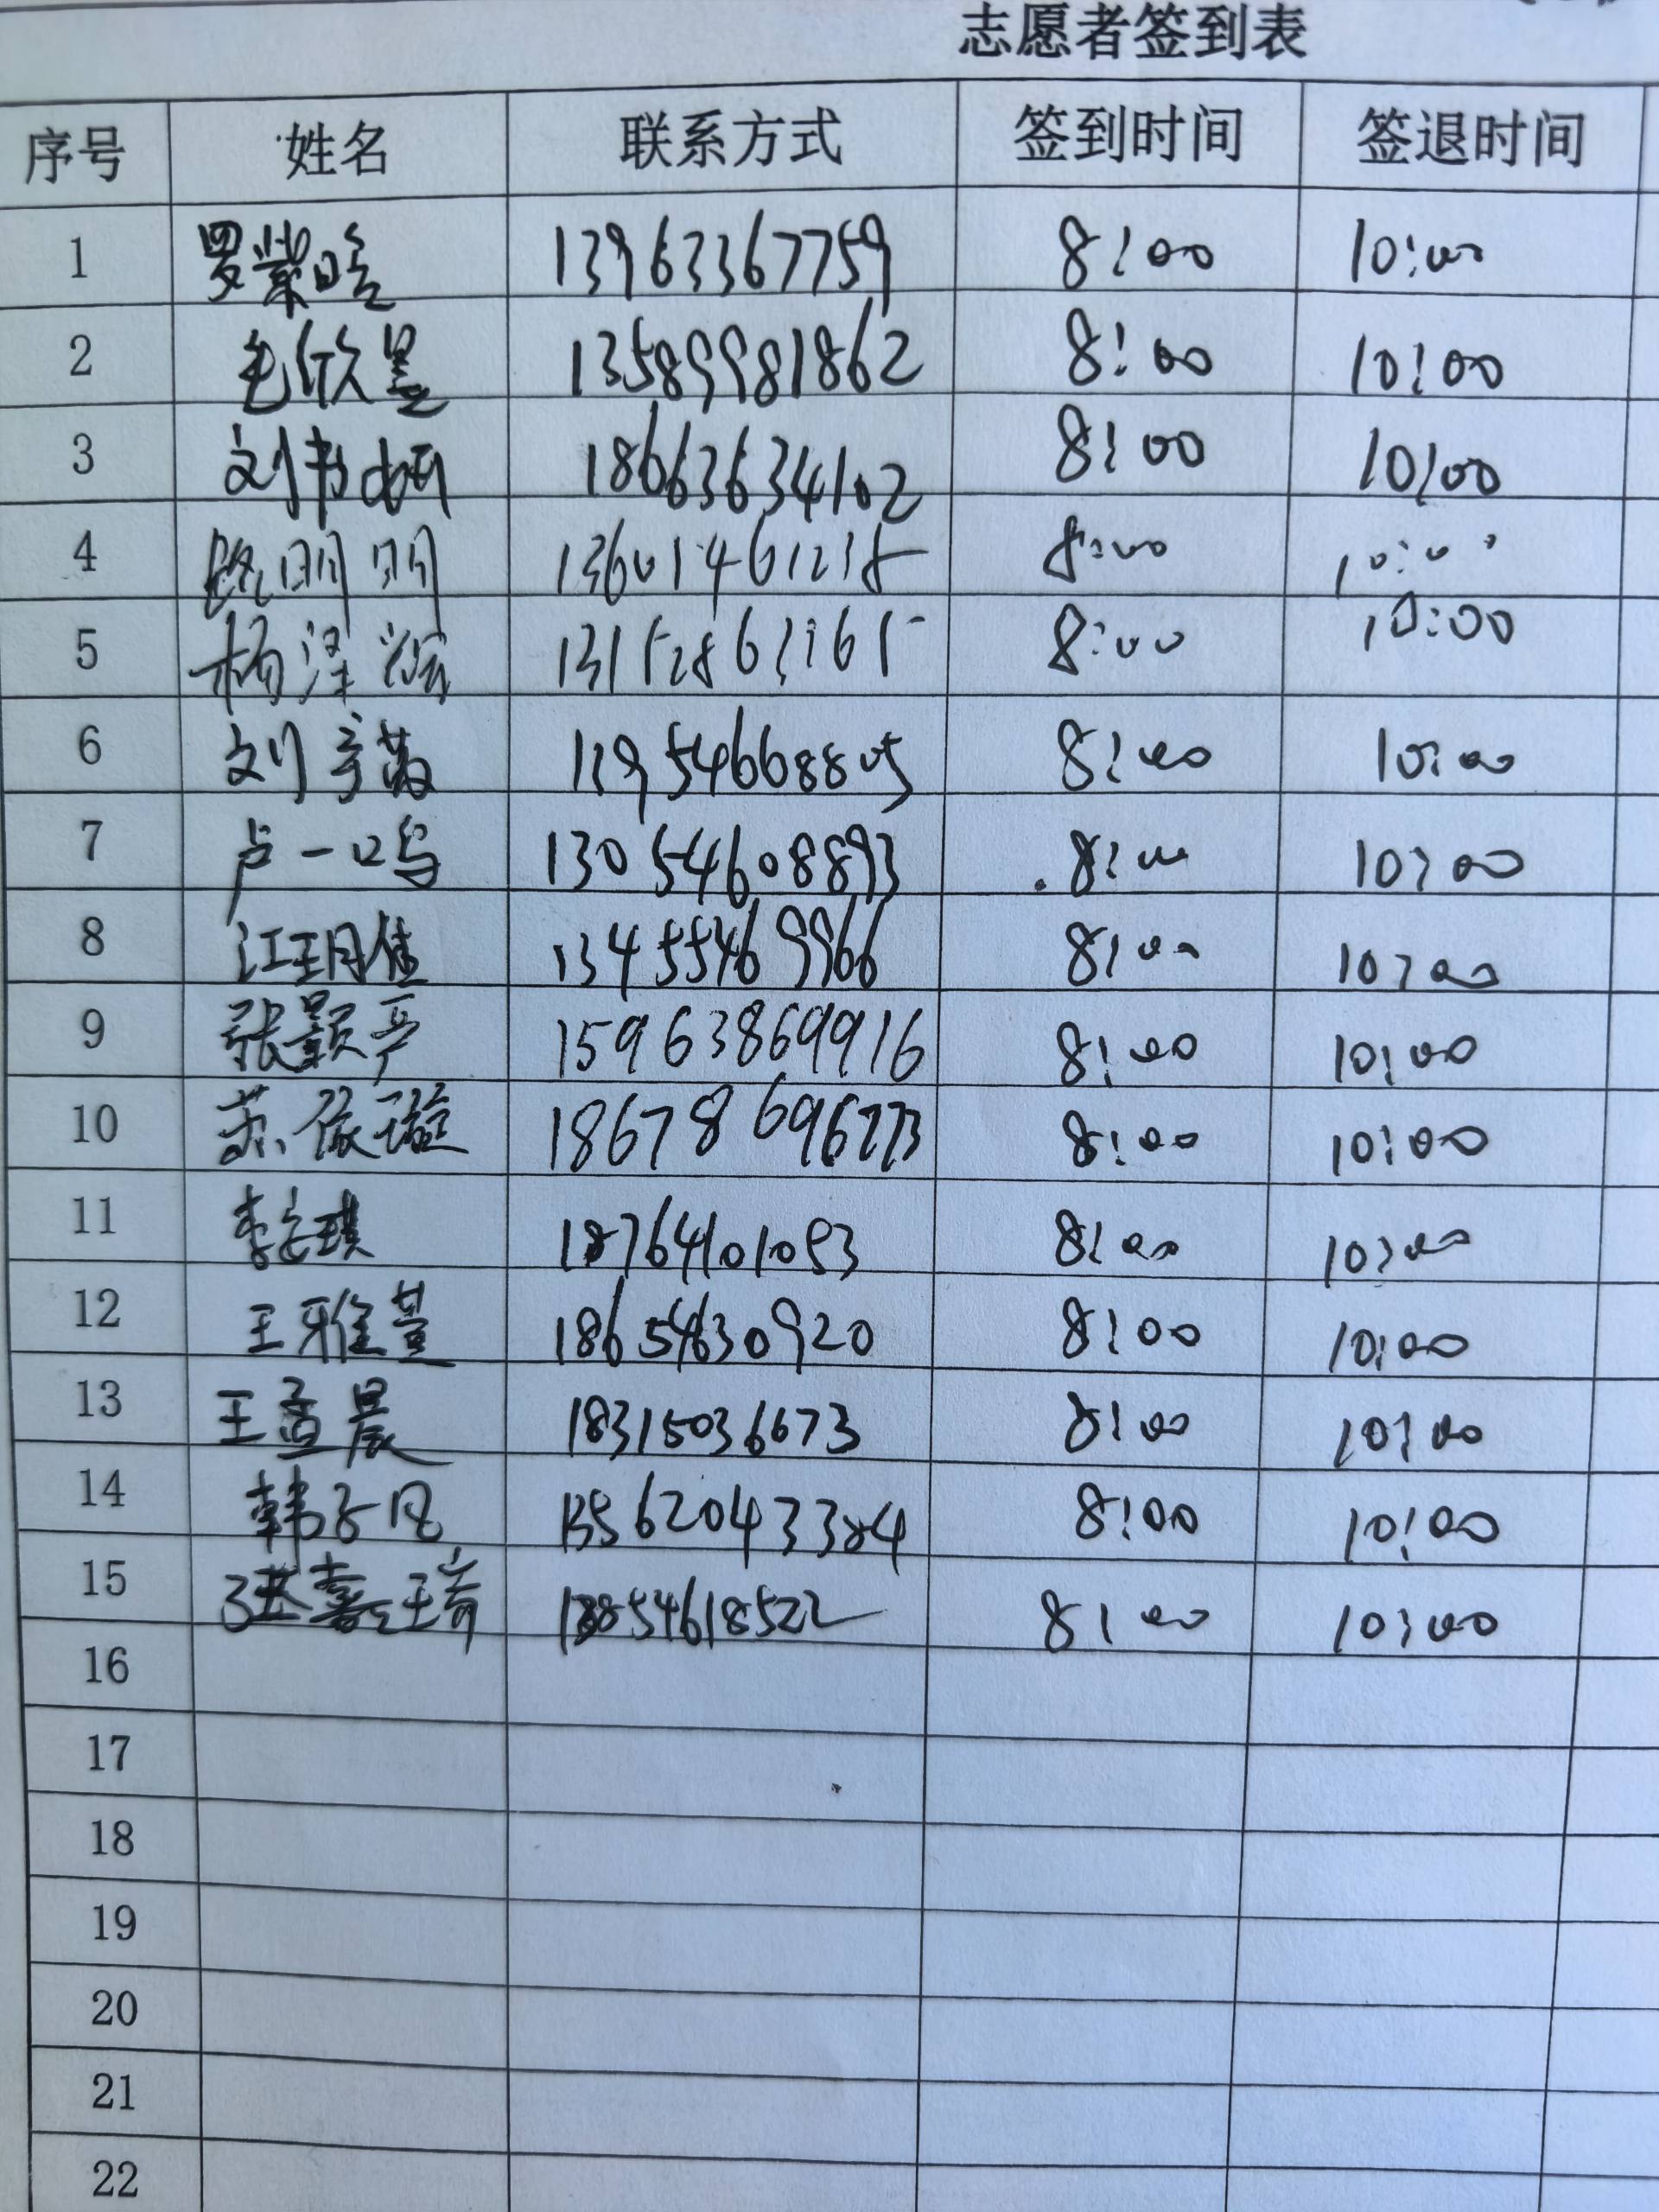 志愿者签到表
序号 姓名 联系方式 签到时间 签退时间
1 罗紫晗 13963367759 8:00 10:00
2 毛欣墨 13589981862 8:00 10:00
3 刘书妍 18663634102 8:00 10:00
4 明明 13601461218 8:00 10:00
5 杨泽 8:00 10:00
6 刘 8:00 10:00
7 卢一鸣 13054608893 8:00 10:00
8 江玥佳 13455469966 8:00 10:00
9 张颢严 15963869916 8:00 10:00
10 苏依璇 8:00 10:00
11 李 琪 18764101093 8:00 10:00
12 王雅萱 18654630920 8:00 10:00
13 王孟晨 18315036673 8:00 10:00
14 韩子凡 15562043384 8:00 10:00
15 18854618522 8:00 10:00
16
17
18
19
20
21
22